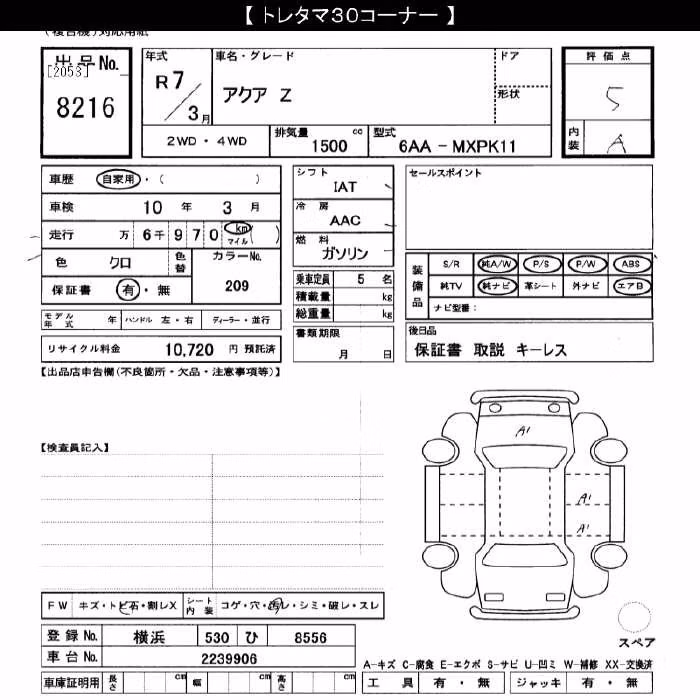 【 トレタマ30コーナー 】
(複合機)対応用紙
出品No.
[2053]
8216
年式
R7
3月
車名・グレード
アクア Z
ドア
形状
評価点
5
内装
A
2WD・4WD
排気量
1500 cc
型式
6AA - MXPK11
車歴 自家用・( )
車検 10年 3月
走行 万 6千 9 7 0 km マイル ( )
色 クロ
色替
カラーNo.
209
保証書 有・無
モデル年式 年
ハンドル 左・右
ディーラー・並行
リサイクル料金 10,720 円 預託済
シフト
IAT
冷房
AAC
燃料
ガソリン
乗車定員 5 名
積載量 kg
総重量 kg
書類期限
月 日
セールスポイント
装備品
S/R 純A/W P/S P/W ABS
純TV 純ナビ 革シート 外ナビ エアB
ナビ型番:
後日品
保証書 取説 キーレス
【出品店申告欄(不良箇所・欠品・注意事項等)】
【検査員記入】
A1
A1
A1
スペア
FW キズ・トビ石・割レX
シート内装 コゲ・穴・汚レ・シミ・破レ・スレ
登録No. 横浜 530 ひ 8556
車台No. 2239906
車庫証明用 長さ cm 幅 cm 高さ cm
A-キズ C-腐食 E-エクボ S-サビ U-凹ミ W-補修 XX-交換済
工具 有・無 ジャッキ 有・無